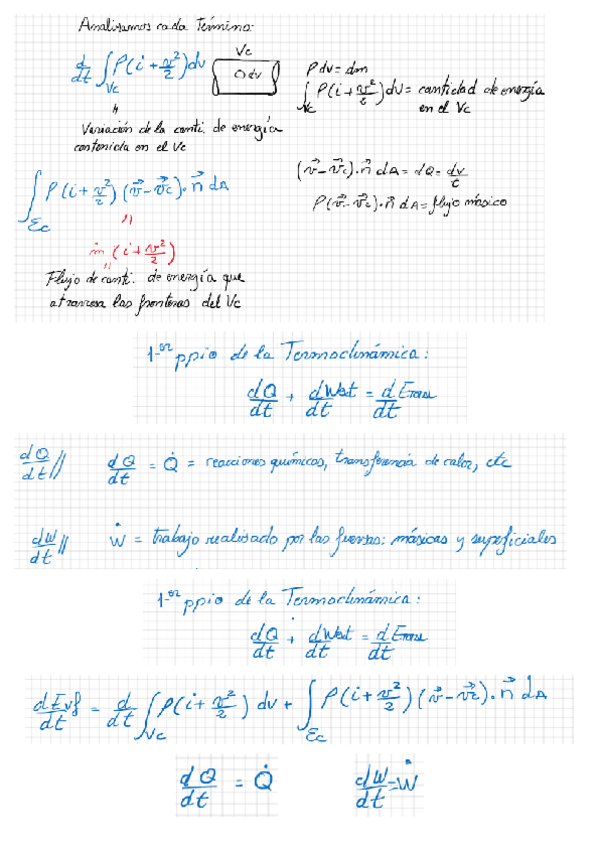 Analizamos cada término:
d/dt ∫Vc ρ(i + v²/2)dv
Vc
○ dv
ρ dv = dm
∫Vc ρ(i + v²/2)dv = cantidad de energía
en el Vc
"
Variación de la canti. de energía
contenida en el Vc
∫Ec ρ(i + v²/2)(v⃗ - v⃗c)·n⃗ dA
(v⃗ - v⃗c)·n⃗ dA = dQ = dv/t
ρ(v⃗ - v⃗c)·n⃗ dA = flujo másico
"
ṁ (i + v²/2)
"
Flujo de canti. de energía que
atraviesa las fronteras del Vc
1-er ppio de la Termodinámica:
dQ/dt + dWext/dt = d/dt
dQ/dt //
dQ/dt = Q̇ = reacciones químicas, transferencia de calor, etc
dW/dt //
Ẇ = trabajo realizado por las fuerzas: másicas y superficiales
1-er ppio de la Termodinámica:
dQ/dt + dWext/dt = d/dt
dEvf/dt = d/dt ∫Vc ρ(i + v²/2) dv + ∫Ec ρ(i + v²/2)(v⃗ - v⃗c)·n⃗ dA
dQ/dt = Q̇
dW/dt = Ẇ